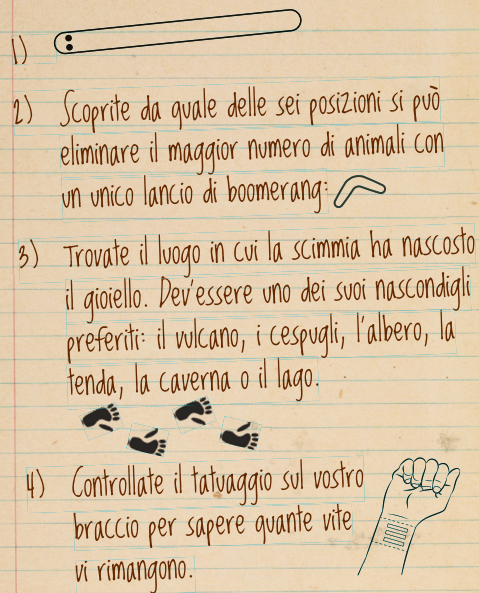 1)
2) Scoprite da quale delle sei posizioni si può
eliminare il maggior numero di animali con
un unico lancio di boomerang:
3) Trovate il luogo in cui la scimmia ha nascosto
il gioiello. Dev'essere uno dei suoi nascondigli
preferiti: il vulcano, i cespugli, l'albero, la
tenda, la caverna o il lago.
4) Controllate il tatuaggio sul vostro
braccio per sapere quante vite
vi rimangono.